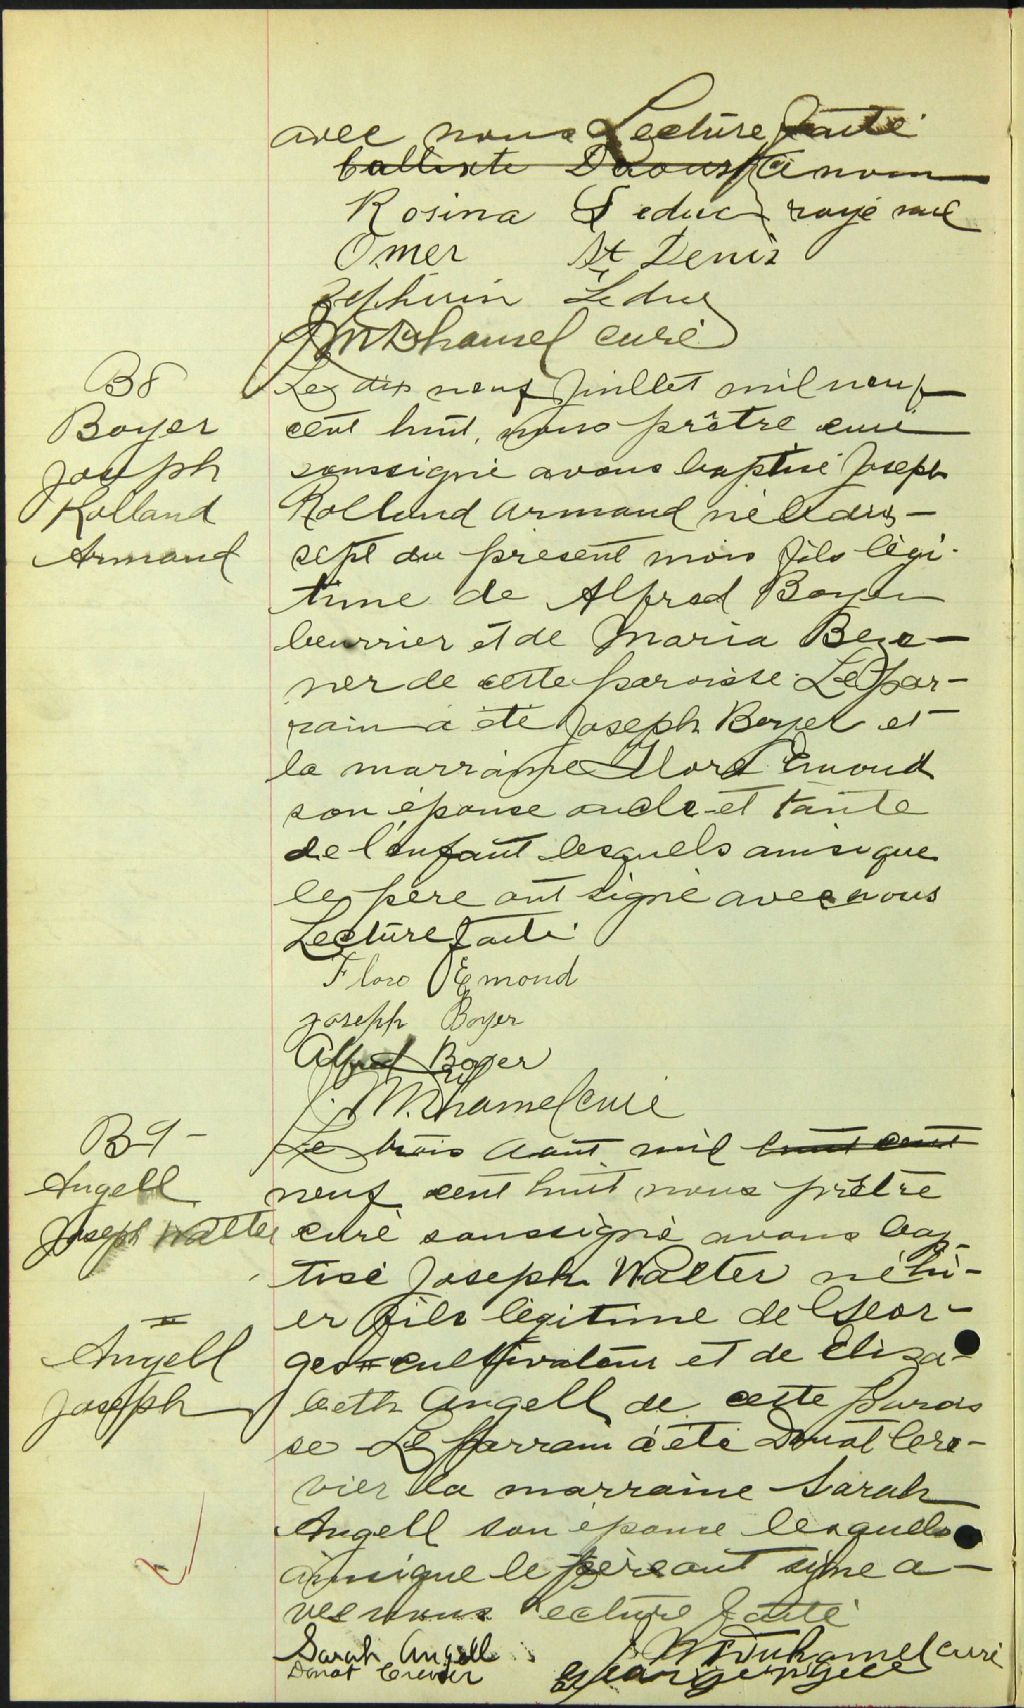 avec nous Lecture faite
Callixte Daoust
Rosina Leduc rayé nul
Omer St Denis
Zéphirin Leduc
J M Duhamel curé
B8
Boyer
Joseph
Rolland
Armand
Le dix neuf Juillet mil neuf
cent huit, nous prêtre curé
soussigné avons baptisé Joseph
Rolland Armand né le dix-
sept du présent mois fils légi-
time de Alfred Boyer
beurrier et de Maria
ner de cette paroisse. Le par-
rain a été Joseph Boyer et
la marraine Flora Emond
son épouse oncle et tante
de l'enfant lesquels ainsi que
le père ont signé avec nous
Lecture faite.
Flora Emond
Joseph Boyer
Alfred Boyer
J. M. Duhamel curé
B-9-
Angell
Joseph Walter
=
Angell
Joseph
Le trois Aout mil huit cent
neuf cent huit nous prêtre
curé soussigné avons bap-
tisé Joseph Walter né hi-
er fils légitime de Geor-
ges = cultivateur et de Eliza-
beth Angell de cette parois
se Le parrain a été Donat Cre-
vier la marraine Sarah
Angell son épouse lesquels
ainsi que le père ont signé a-
vec nous Lecture faite
Sarah Angell J M Duhamel curé
Donat Crevier George Angell